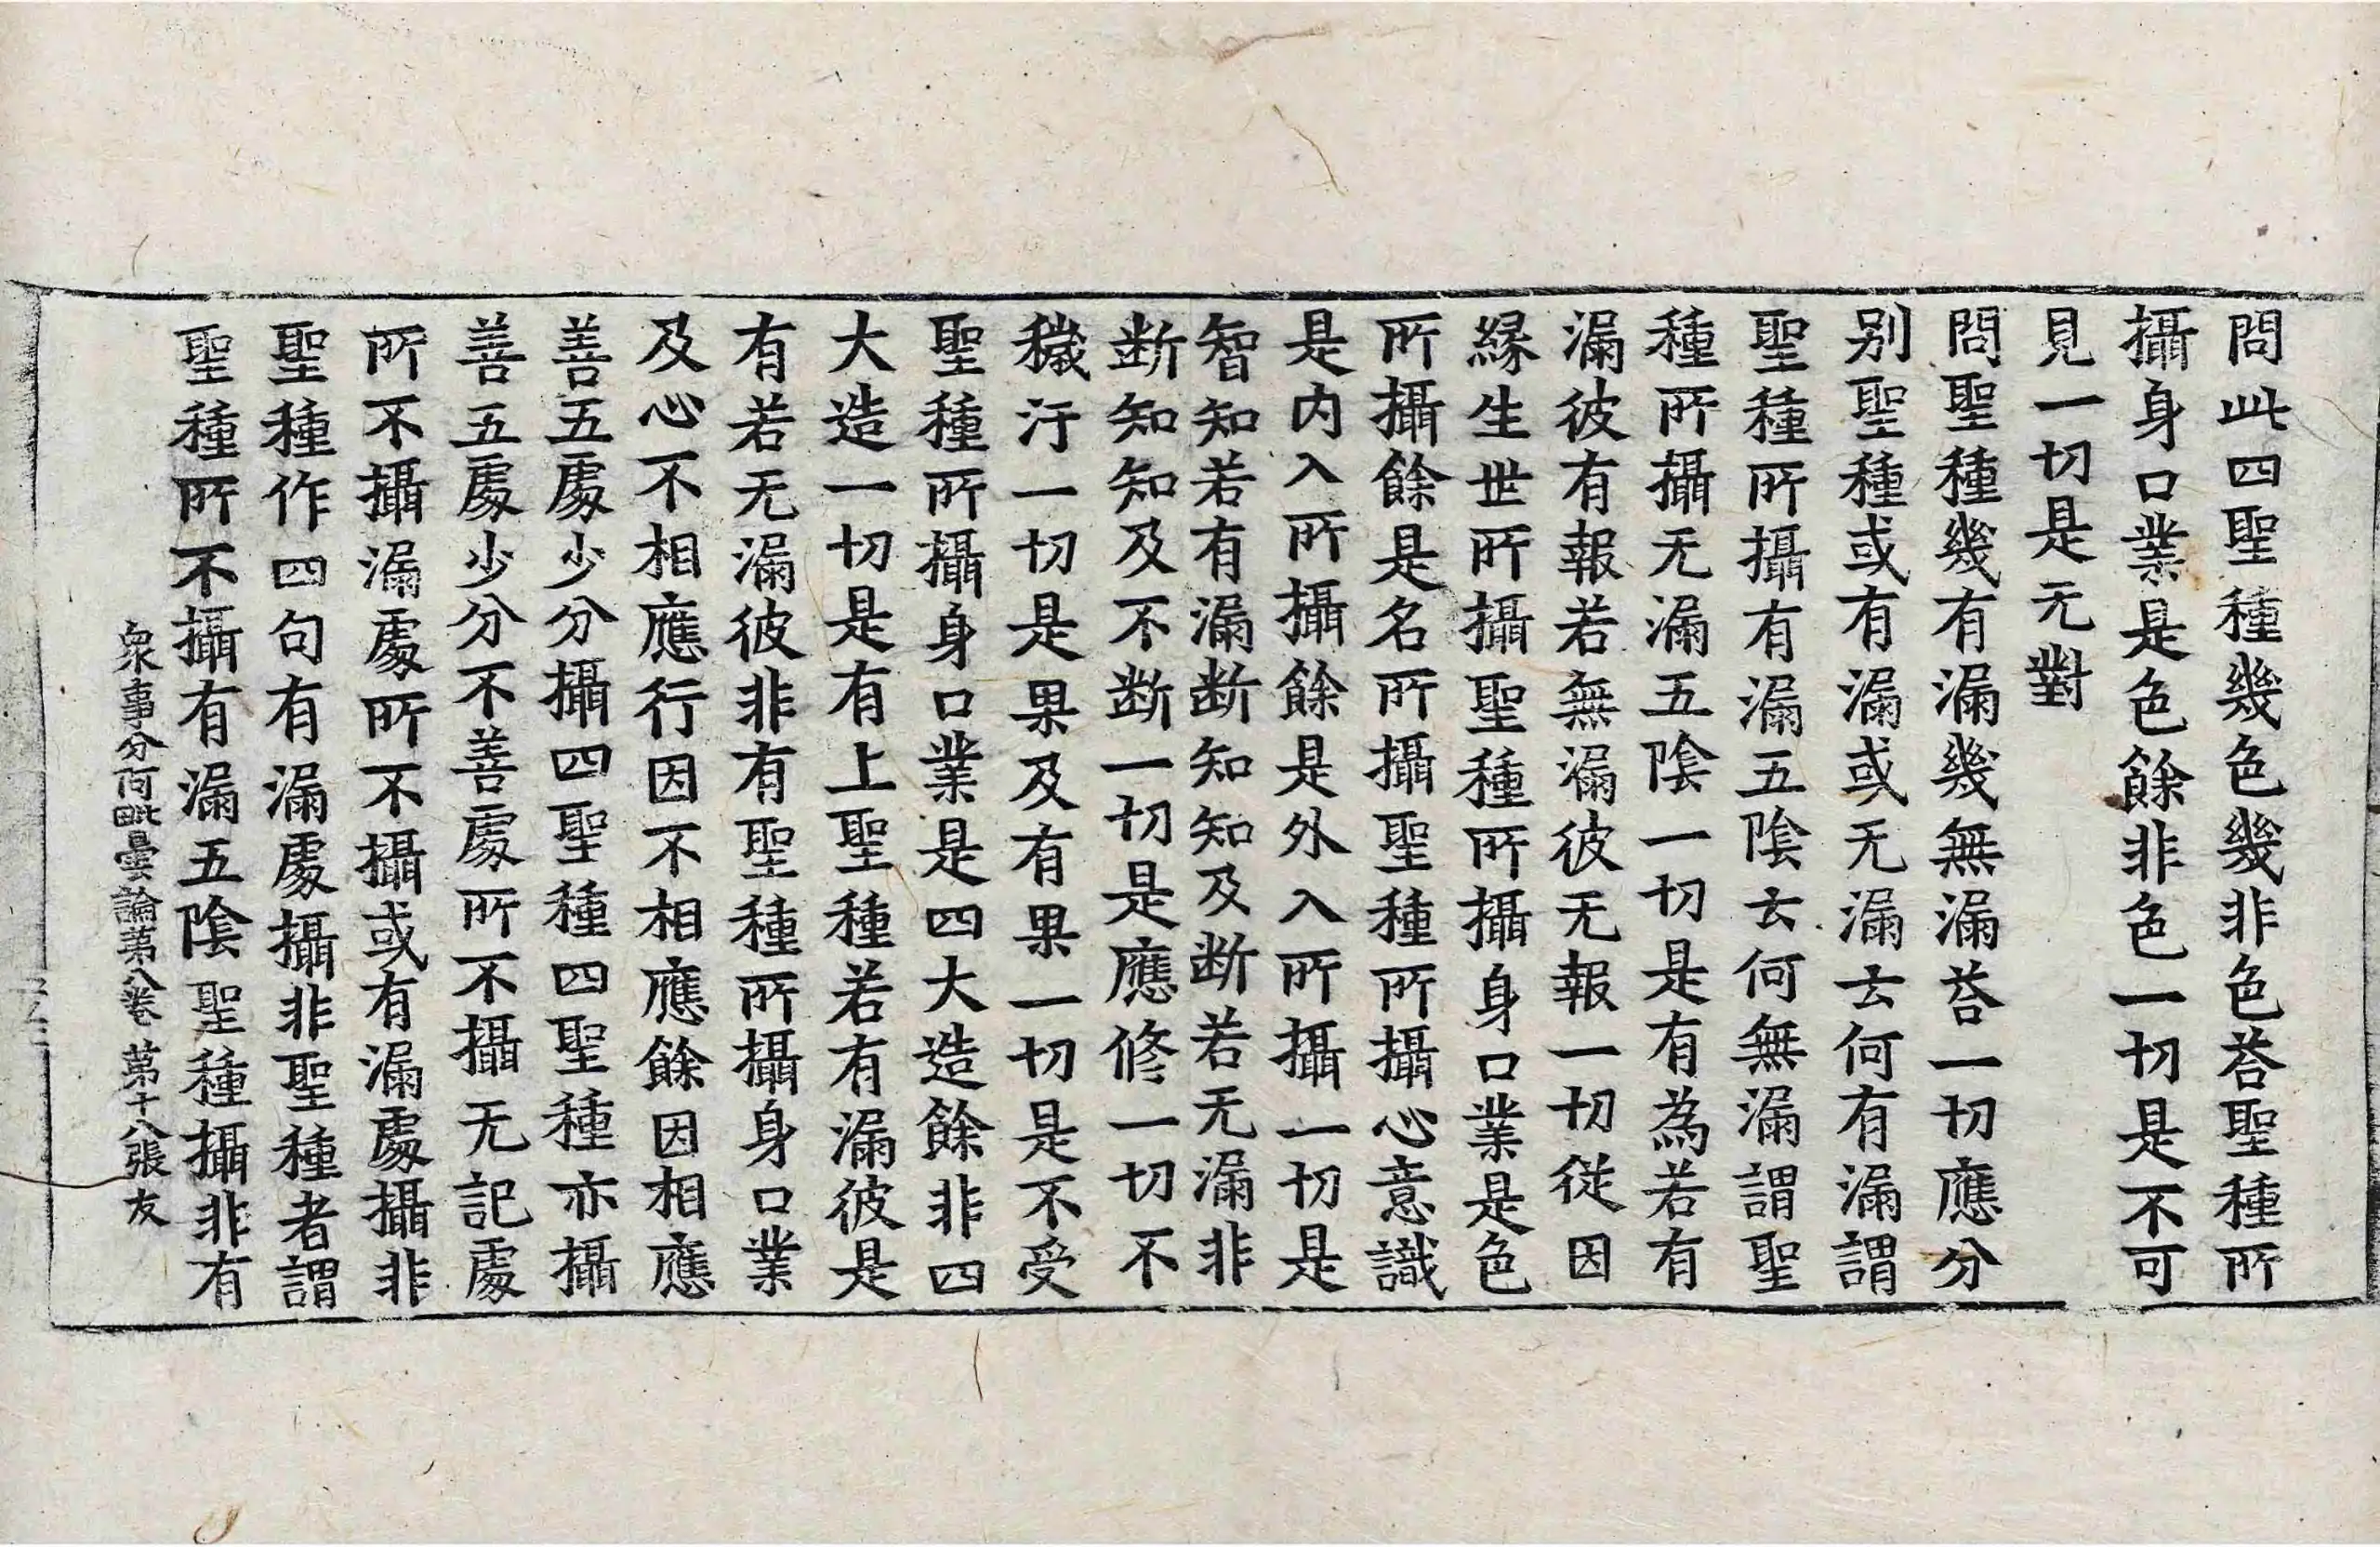 問此四聖種幾色幾非色荅聖種所
攝身口業是色餘非色一切是不可
見一切是无對
問聖種幾有漏幾無漏荅一切應分
別聖種或有漏或无漏云何有漏謂
聖種所攝有漏五陰云何無漏謂聖
種所攝无漏五陰一切是有為若有
漏彼有報若無漏彼无報一切從因
緣生世所攝聖種所攝身口業是色
所攝餘是名所攝聖種所攝心意識
是內入所攝餘是外入所攝一切是
智知若有漏断知知及断若无漏非
断知知及不断一切是應修一切不
穢汙一切是果及有果一切是不受
聖種所攝身口業是四大造餘非四
大造一切是有上聖種若有漏彼是
有若无漏彼非有聖種所攝身口業
及心不相應行因不相應餘因相應
善五處少分攝四聖種四聖種亦攝
善五處少分不善處所不攝无記處
所不攝漏處所不攝或有漏處攝非
聖種作四句有漏處攝非聖種者謂
聖種所不攝有漏五陰聖種攝非有
衆事分阿毗曇論苐八卷 苐十八張 友